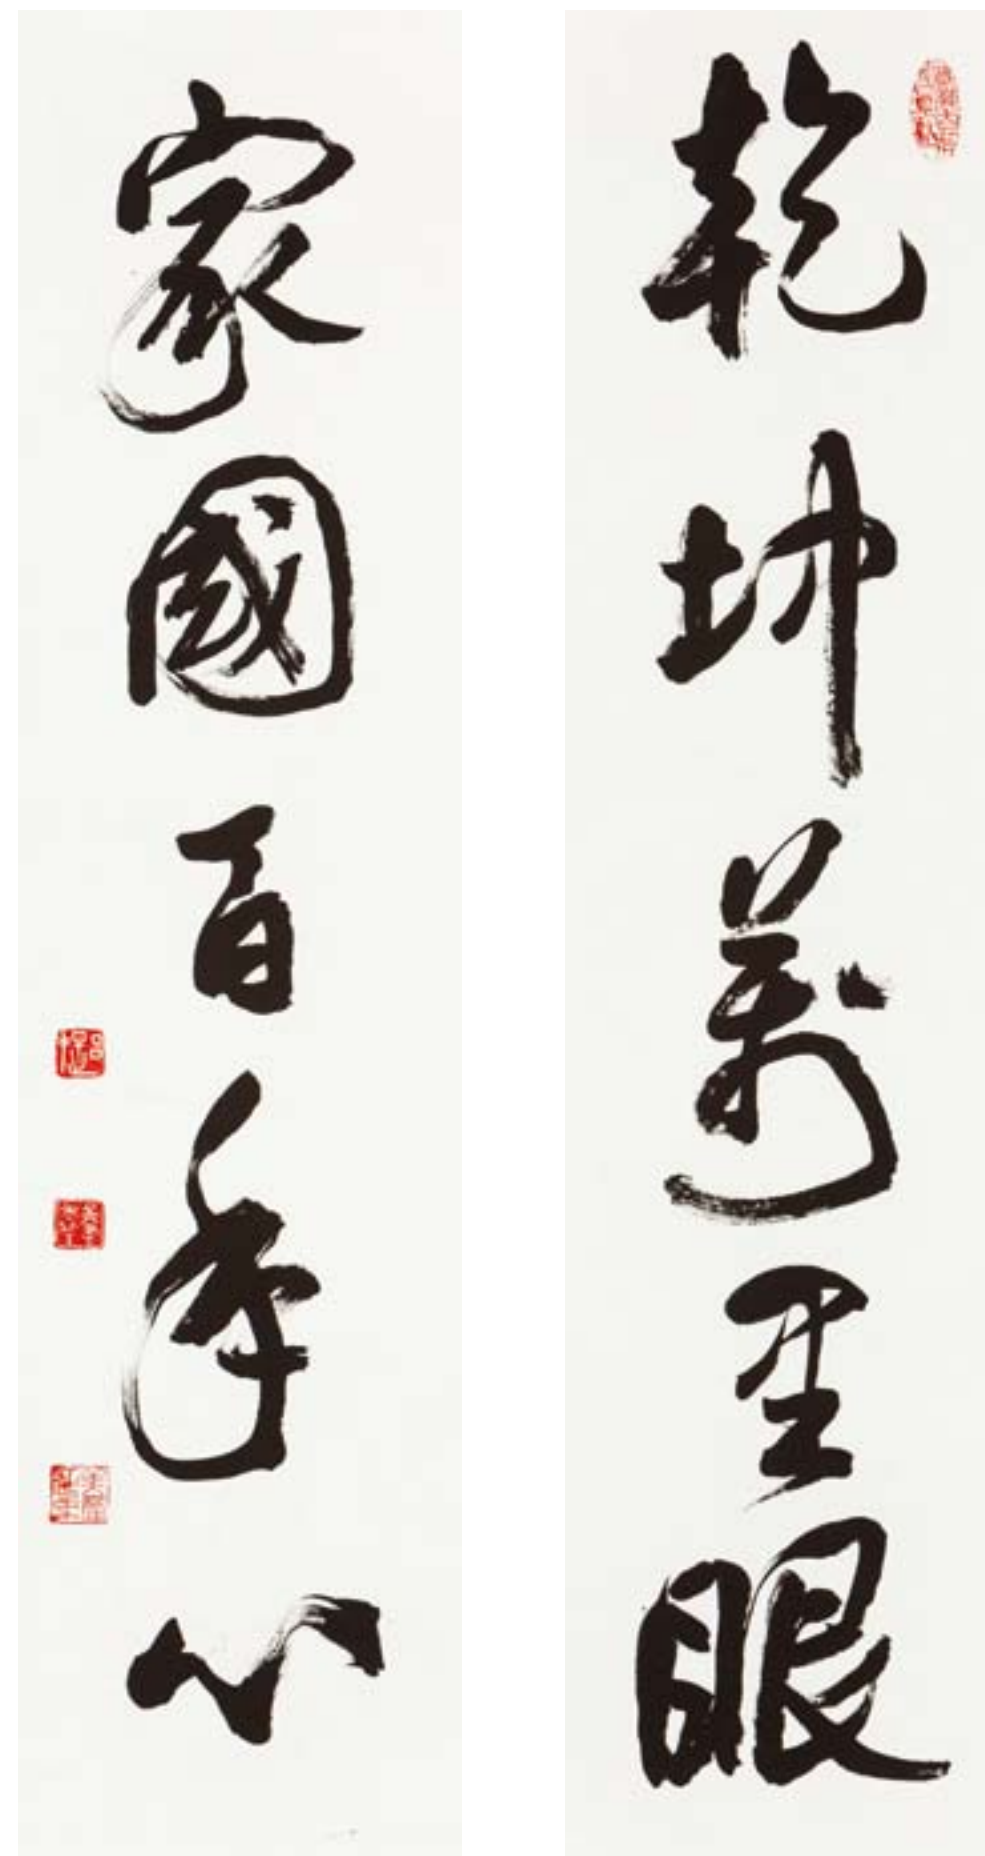 乾坤萬里眼
家國百年心